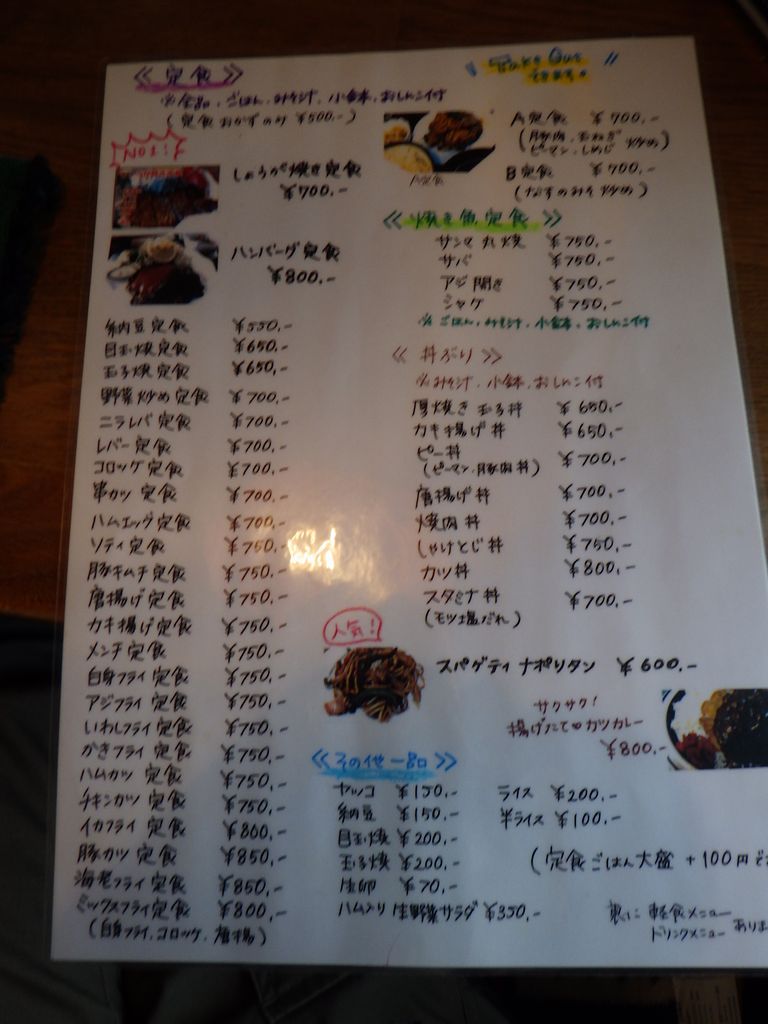 ≪ 定食 ≫
※全品、ごはん、みそ汁、小鉢、おしんこ付
(定食おかずのみ ¥500.-)
しょうが焼き定食
¥700.-
ハンバーグ定食
¥800.-
納豆定食 ¥550.-
目玉焼定食 ¥650.-
玉子焼定食 ¥650.-
野菜炒め定食 ¥700.-
ニラレバ定食 ¥700.-
レバー定食 ¥700.-
コロッケ定食 ¥700.-
串カツ定食 ¥700.-
ハムエッグ定食 ¥700.-
ソティ定食 ¥750.-
豚キムチ定食 ¥750.-
唐揚げ定食 ¥750.-
カキ揚げ定食 ¥750.-
メンチ定食 ¥750.-
白身フライ定食 ¥750.-
アジフライ定食 ¥750.-
いわしフライ定食 ¥750.-
かきフライ定食 ¥750.-
ハムカツ定食 ¥750.-
チキンカツ定食 ¥750.-
イカフライ定食 ¥800.-
豚カツ定食 ¥850.-
海老フライ定食 ¥850.-
ミックスフライ定食 ¥800.-
(白身フライ、コロッケ、唐揚)
"Take Out
できます。"
A定食
A定食 ¥700.-
(豚肉、玉ねぎ
ピーマン、しめじ 炒め)
B定食 ¥700.-
(なすのみそ炒め)
≪ 焼き魚定食 ≫
サンマ丸焼 ¥750.-
サバ ¥750.-
アジ開き ¥750.-
シャケ ¥750.-
※ごはん、みそ汁、小鉢、おしんこ付
≪ 丼ぶり ≫
※みそ汁、小鉢、おしんこ付
厚焼き玉子丼 ¥650.-
カキ揚げ丼 ¥650.-
ピー丼
(ピーマン、豚肉丼) ¥700.-
唐揚げ丼 ¥700.-
焼肉丼 ¥700.-
しゃけとじ丼 ¥750.-
カツ丼 ¥800.-
スタミナ丼 ¥700.-
(モツ塩だれ)
人気!
スパゲティ ナポリタン ¥600.-
サクサク!
揚げたてのカツカレー
¥800.-
≪その他一品≫
ヤッコ ¥150.-
納豆 ¥150.-
目玉焼 ¥200.-
玉子焼 ¥200.-
生卵 ¥70.-
ハム入り 生野菜サラダ ¥350.-
ライス ¥200.-
半ライス ¥100.-
(定食ごはん大盛 +100円で
裏に 軽食メニュー
ドリンクメニュー あります